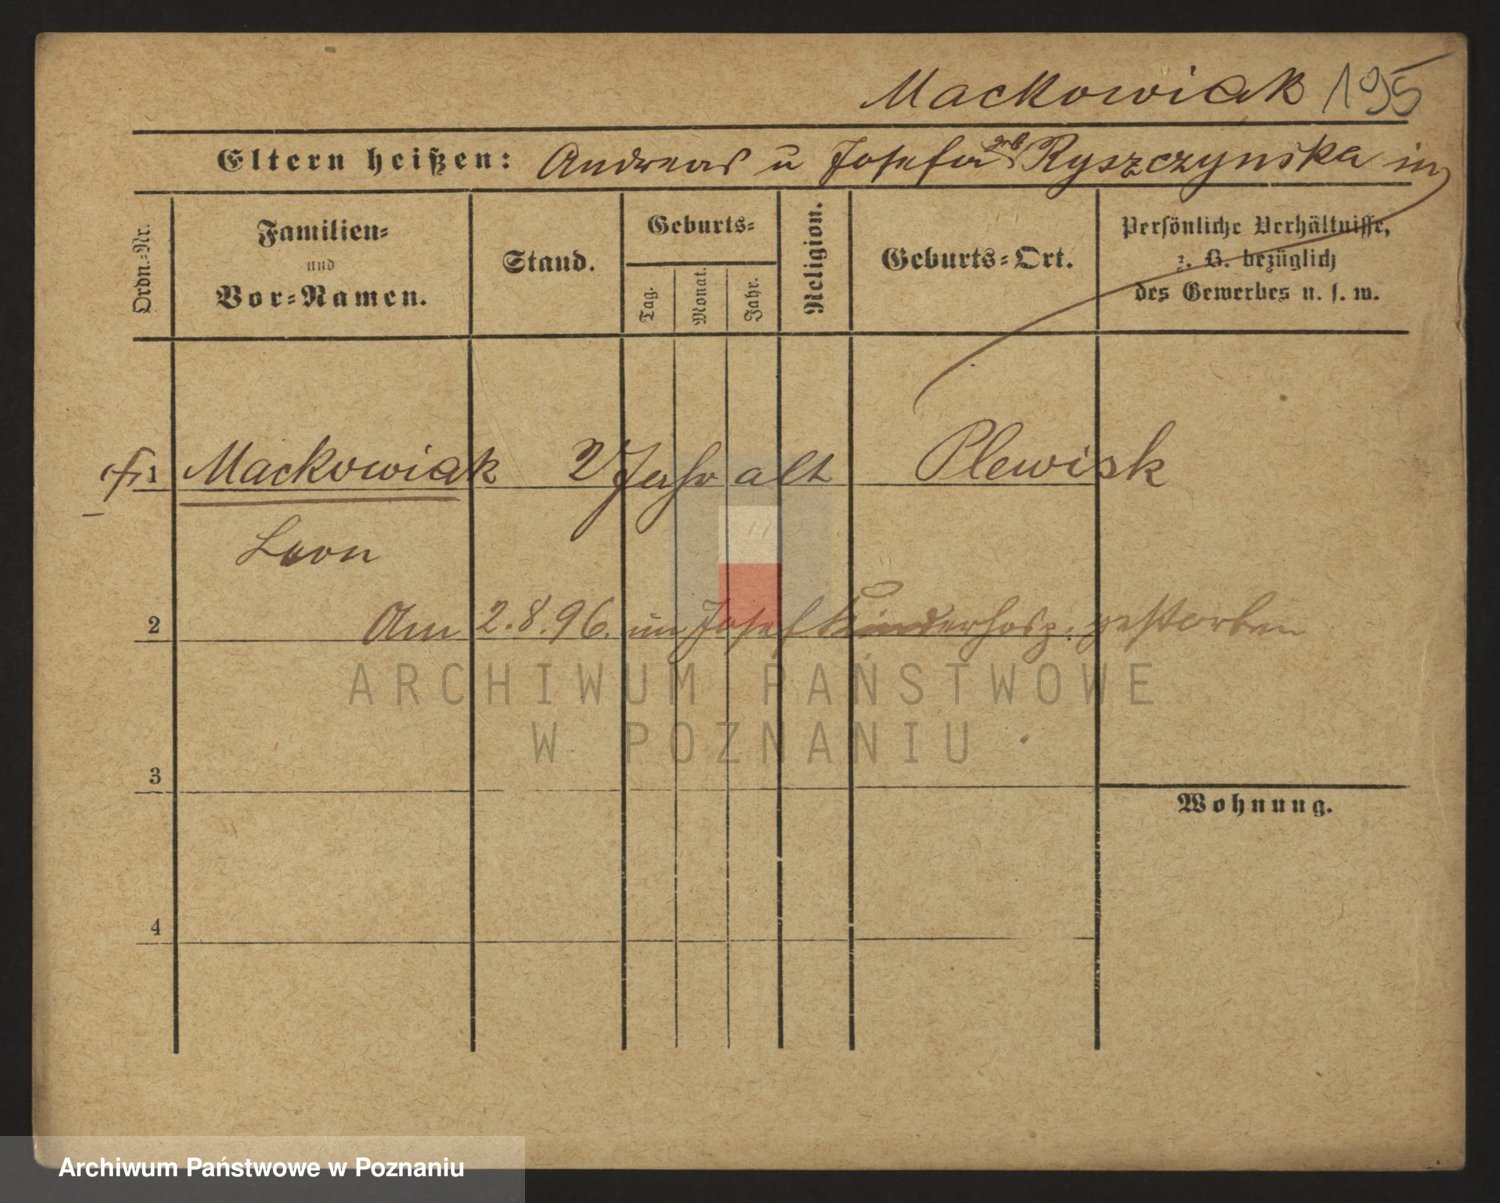 Mackowiak 195
Eltern heißen: Andreas u Josefa geb Ryszczynska in
Ordn.-Nr.
Familien-
und
Vor-Namen.
Stand.
Geburts-
Tag.
Monat.
Jahr.
Religion.
Geburts-Ort.
Persönliche Verhältnisse,
z. B. bezüglich
des Gewerbes u. s. w.
1 Mackowiak 2 Jahr alt Plewisk
Leon
2 Am 2.8.96. im Josef Kinderhosp. gestorben
ARCHIWUM PAŃSTWOWE
W POZNANIU
3
Wohnung.
4
Archiwum Państwowe w Poznaniu